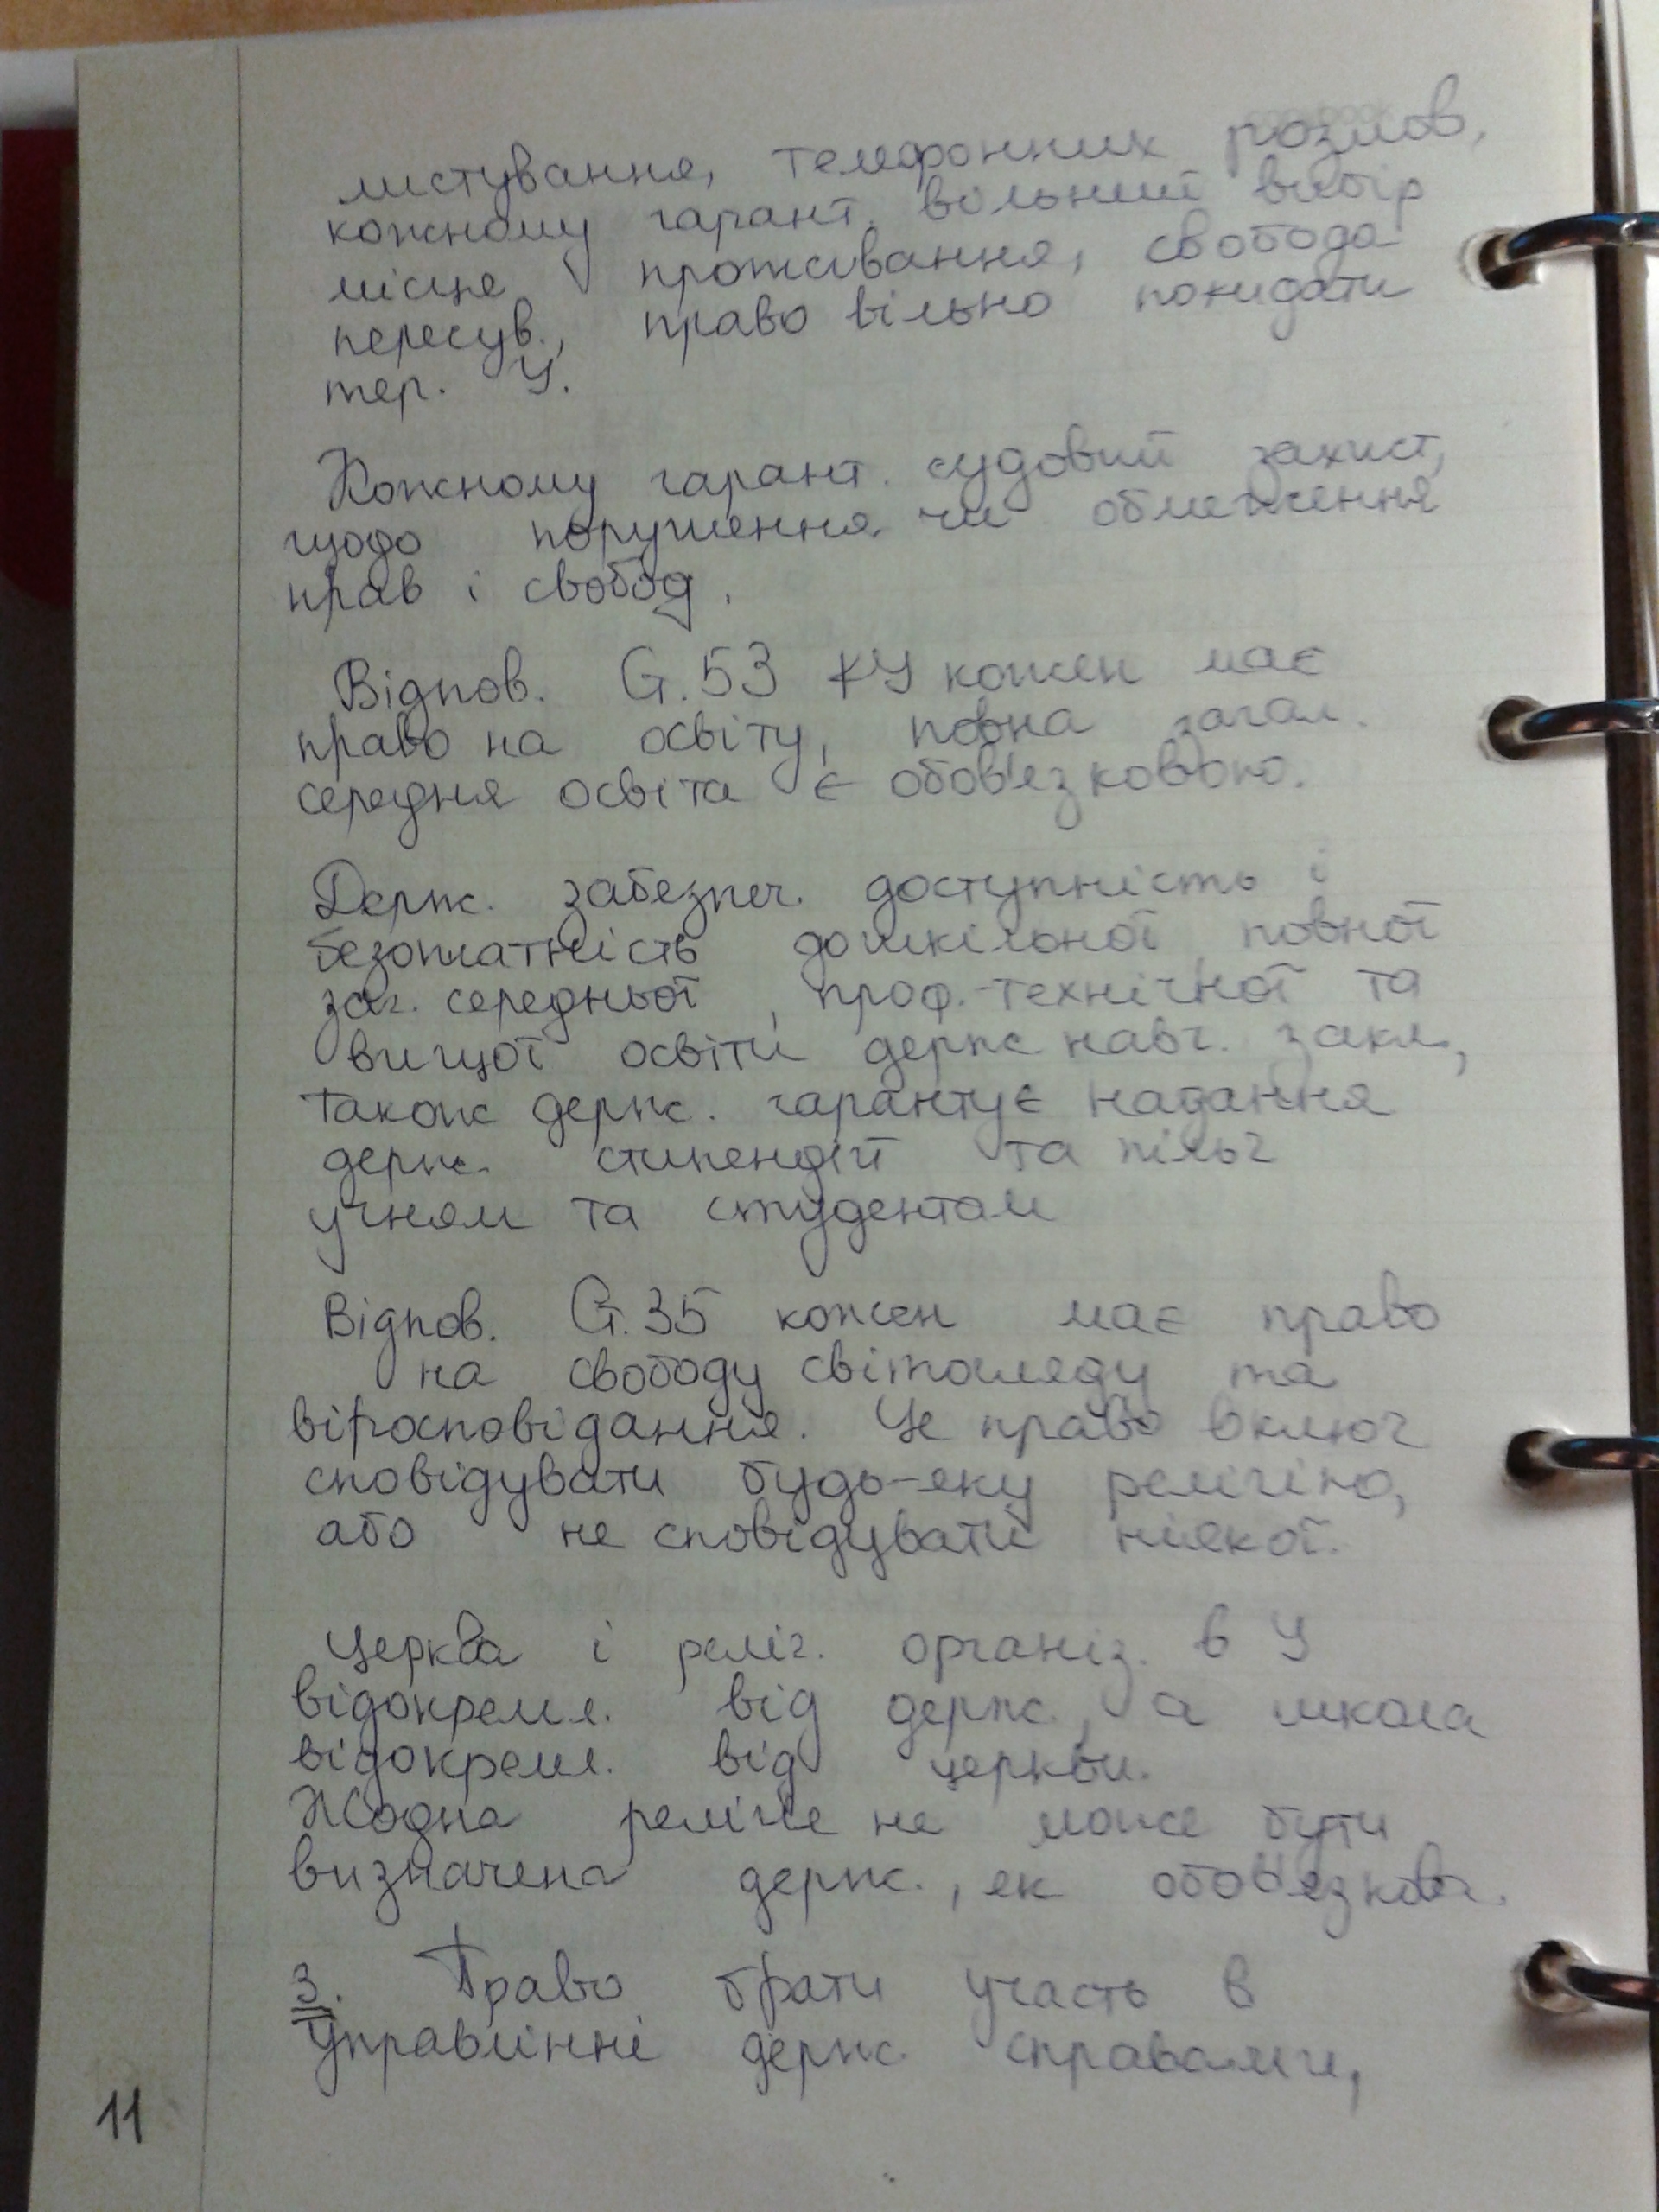 листування, телефонних розмов,
кожному гарант. вільний вибір
місце проживання, свобода
пересув., право вільно покидати
тер. У.
Кожному гарант. судовий захист,
щодо порушення чи обмеження
прав і свобод.
Відпов. Ст. 53 КУ кожен має
право на освіту, повна загал.
середня освіта є обов'язковою.
Держ. забезпеч. доступність і
безоплатність дошкільної, повної
заг. середньої, проф.-технічної та
вищої освіти держ. навч. закл,
також держ. гарантує надання
держ. стипендій та пільг
учням та студентам
Відпов. Ст. 35 кожен має право
на свободу світогляду та
віросповідання. Це право включ
сповідувати будь-яку релігію,
або не сповідувати ніякої.
Церква і реліг. організ. в У
відокремл. від держ., а школа
відокремл. від церкви.
Жодна релігія не може бути
визначена держ., як обов'язкова.
3. Право брати участь в
управлінні держ. справами,
11